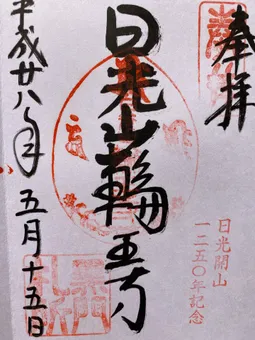 奉拝
日光山輪王寺
日光開山
一二五〇年記念
平成廿八年 五月十五日
黒門
札所